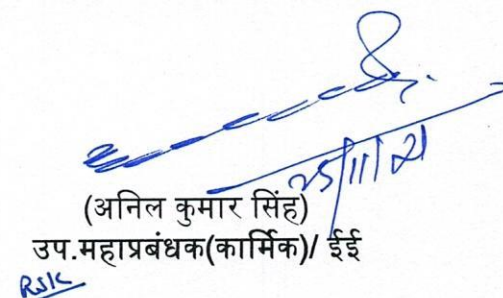 25/11/21
(अनिल कुमार सिंह)
उप.महाप्रबंधक(कार्मिक)/ ईई
RSK